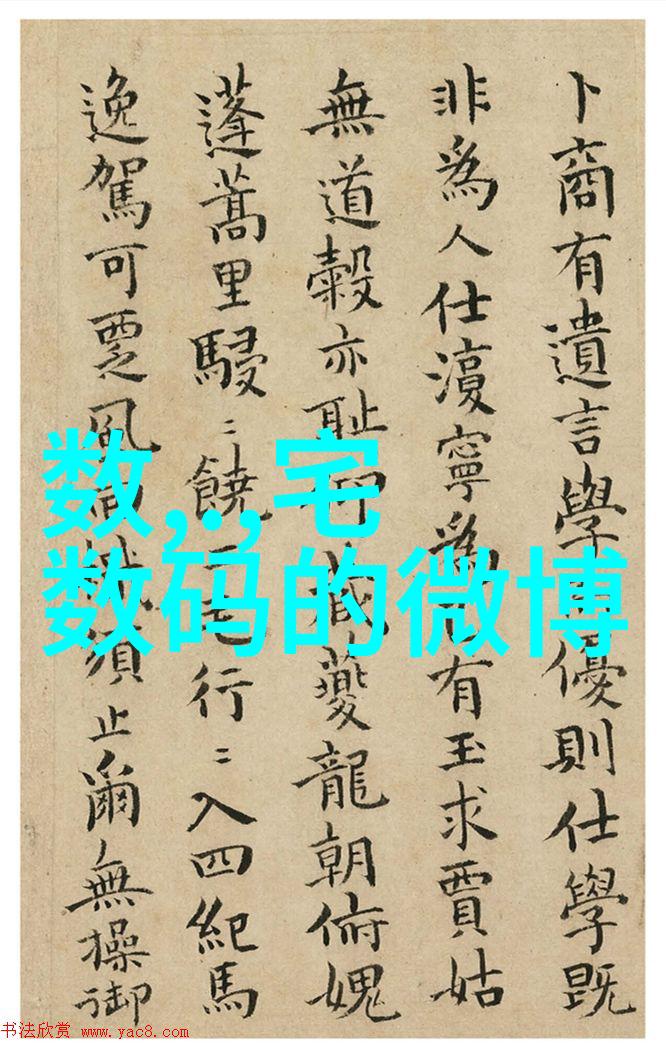 卜商有遺言學優則仕學既
非為人仕須寧為己有玉求賈姑
無道穀亦耻龍朝俯愧
蓬蒿里駸〻饒毛行〻入四紀馬
逸駕可覂風須止爾無操御
数,.,宅
数码的微博
书法欣赏 www.yac8.com